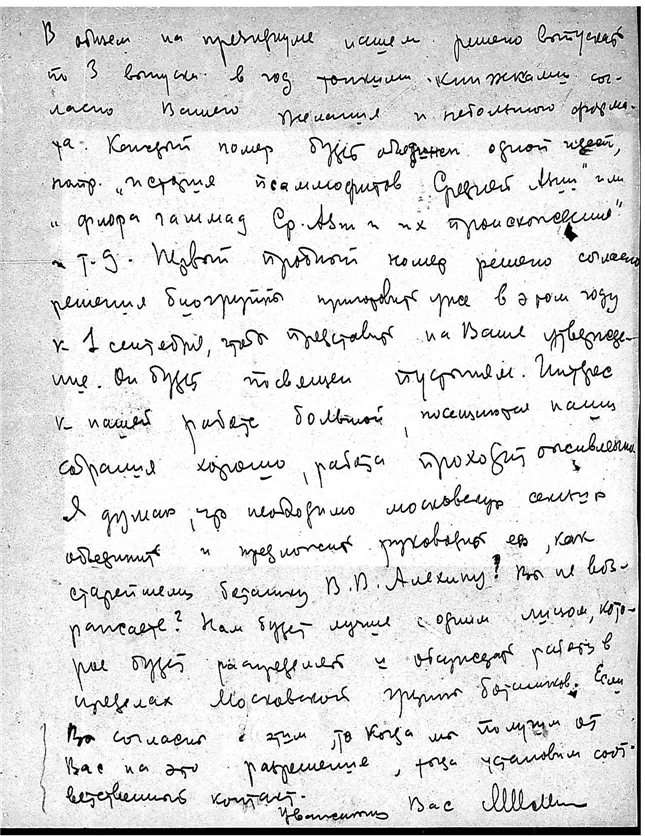 В общем на президиуме нашем решено выпускать
по 3 выпуска в год тонкими книжками сог-
ласно Вашего желания и небольшого форма-
та. Каждый номер будет объединен одной идеей,
напр. „история псаммофитов Средней Азии" или
„флора гаммад Ср. Азии и их происхождение"
и т.д. Первый пробный номер решено согласно
решения биогруппы приготовить уже в этом году
к 1 сентября, чтоб представить на Ваше утвержде-
ние. Он будет посвящен пустыням. Интерес
к нашей работе большой, посещаются наши
собрания хорошо, работа проходит оживленно.
Я думаю, что необходимо московскую секцию
объединить и предложить руководить ею, как
старейшему ботанику В.В. Алехину? Вы не воз-
ражаете? Нам будет лучше с одним лицом, кото-
рое будет распределять и обсуждать работу в
пределах Московской группы ботаников. Если
Вы согласны с этим, то когда мы получим от
Вас на это разрешение, тогда установим соот-
ветственный контакт.
Уважающий Вас